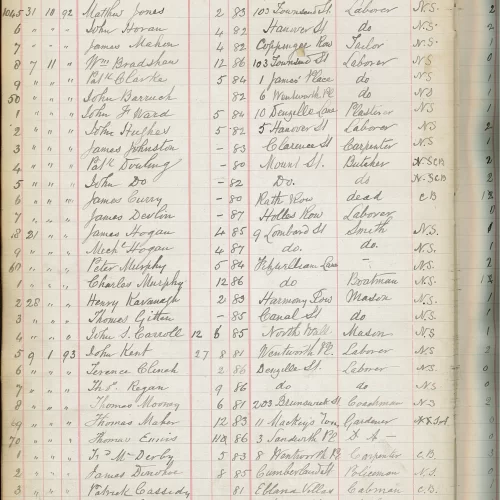 1045 31 10 92 Matthew Jones 2 83 103 Townsend St. Laborer N.S.
6 " " " John Horan 4 82 Hanover St do N.S.
7 " " " James Mahon 4 82 Coppinger Row Tailor N.S.
8 7 11 " Wm Bradshaw 12 86 103 Townsend St Laborer N.S.
9 " " " Patk Clarke 5 84 1 James' Place do N.S.
50 " " " John Barruck 82 6 Wentworth Pl do N.S.
1 " " " John F Ward 5 84 10 Denzille Lane Plasterer N.S.
2 " " " John Hughes 5 82 5 Hanover St Laborer N.S.
3 " " " James Johnston - 83 Clarence St Carpenter N.S.
4 " " " Patk Dowling - 80 Mount St. Butcher N.S.C.B
5 " " " John Do - 82 Do. do N.S.C.B
6 " " " James Curry - 80 Rath Row dead C.B
7 " " " James Devlin - 87 Holles Row Laborer
8 21 " " James Hogan 4 85 9 Lombard St Smith N.S.
9 " " " Mechl Hogan 4 87 do. do. N.S.
60 " " " Peter Murphy 5 84 Fitzwilliam Lane - N.S.
1 " " " Charles Murphy 12 86 do Boatman N.S.
2 28 " " Henry Kavanagh 2 83 Harmony Row Mason N.S.
3 " " " Thomas - 85 Canal St do N.S.
4 " " " John S. Carroll 12 6 85 North Wall Mason N.S.
5 9 1 93 John Kent 27 8 81 Wentworth Pl. Laborer N.S.
6 " " " Terence Clinch 2 86 Denzille St. Laborer N.S.
7 " " " Thos. Regan 9 86 do do N.S
8 " " " Thomas Mooney 6 81 203 Brunswick St Coachman N.S
69 " " " Thomas Maher 12 83 11 Mackey's Town Gardener
70 " " " Thomas Ennis 10 86 3 Sandwith Pl N.S.
1 " " " Frs McDerby 5 83 8 Wentworth Pl Carpenter C.B.
2 " " " James Donohue 8 85 Cumberland St Policeman N.S.
3 " " " Patrick Cassedy 81 Eblana Villas Cabman C.B.